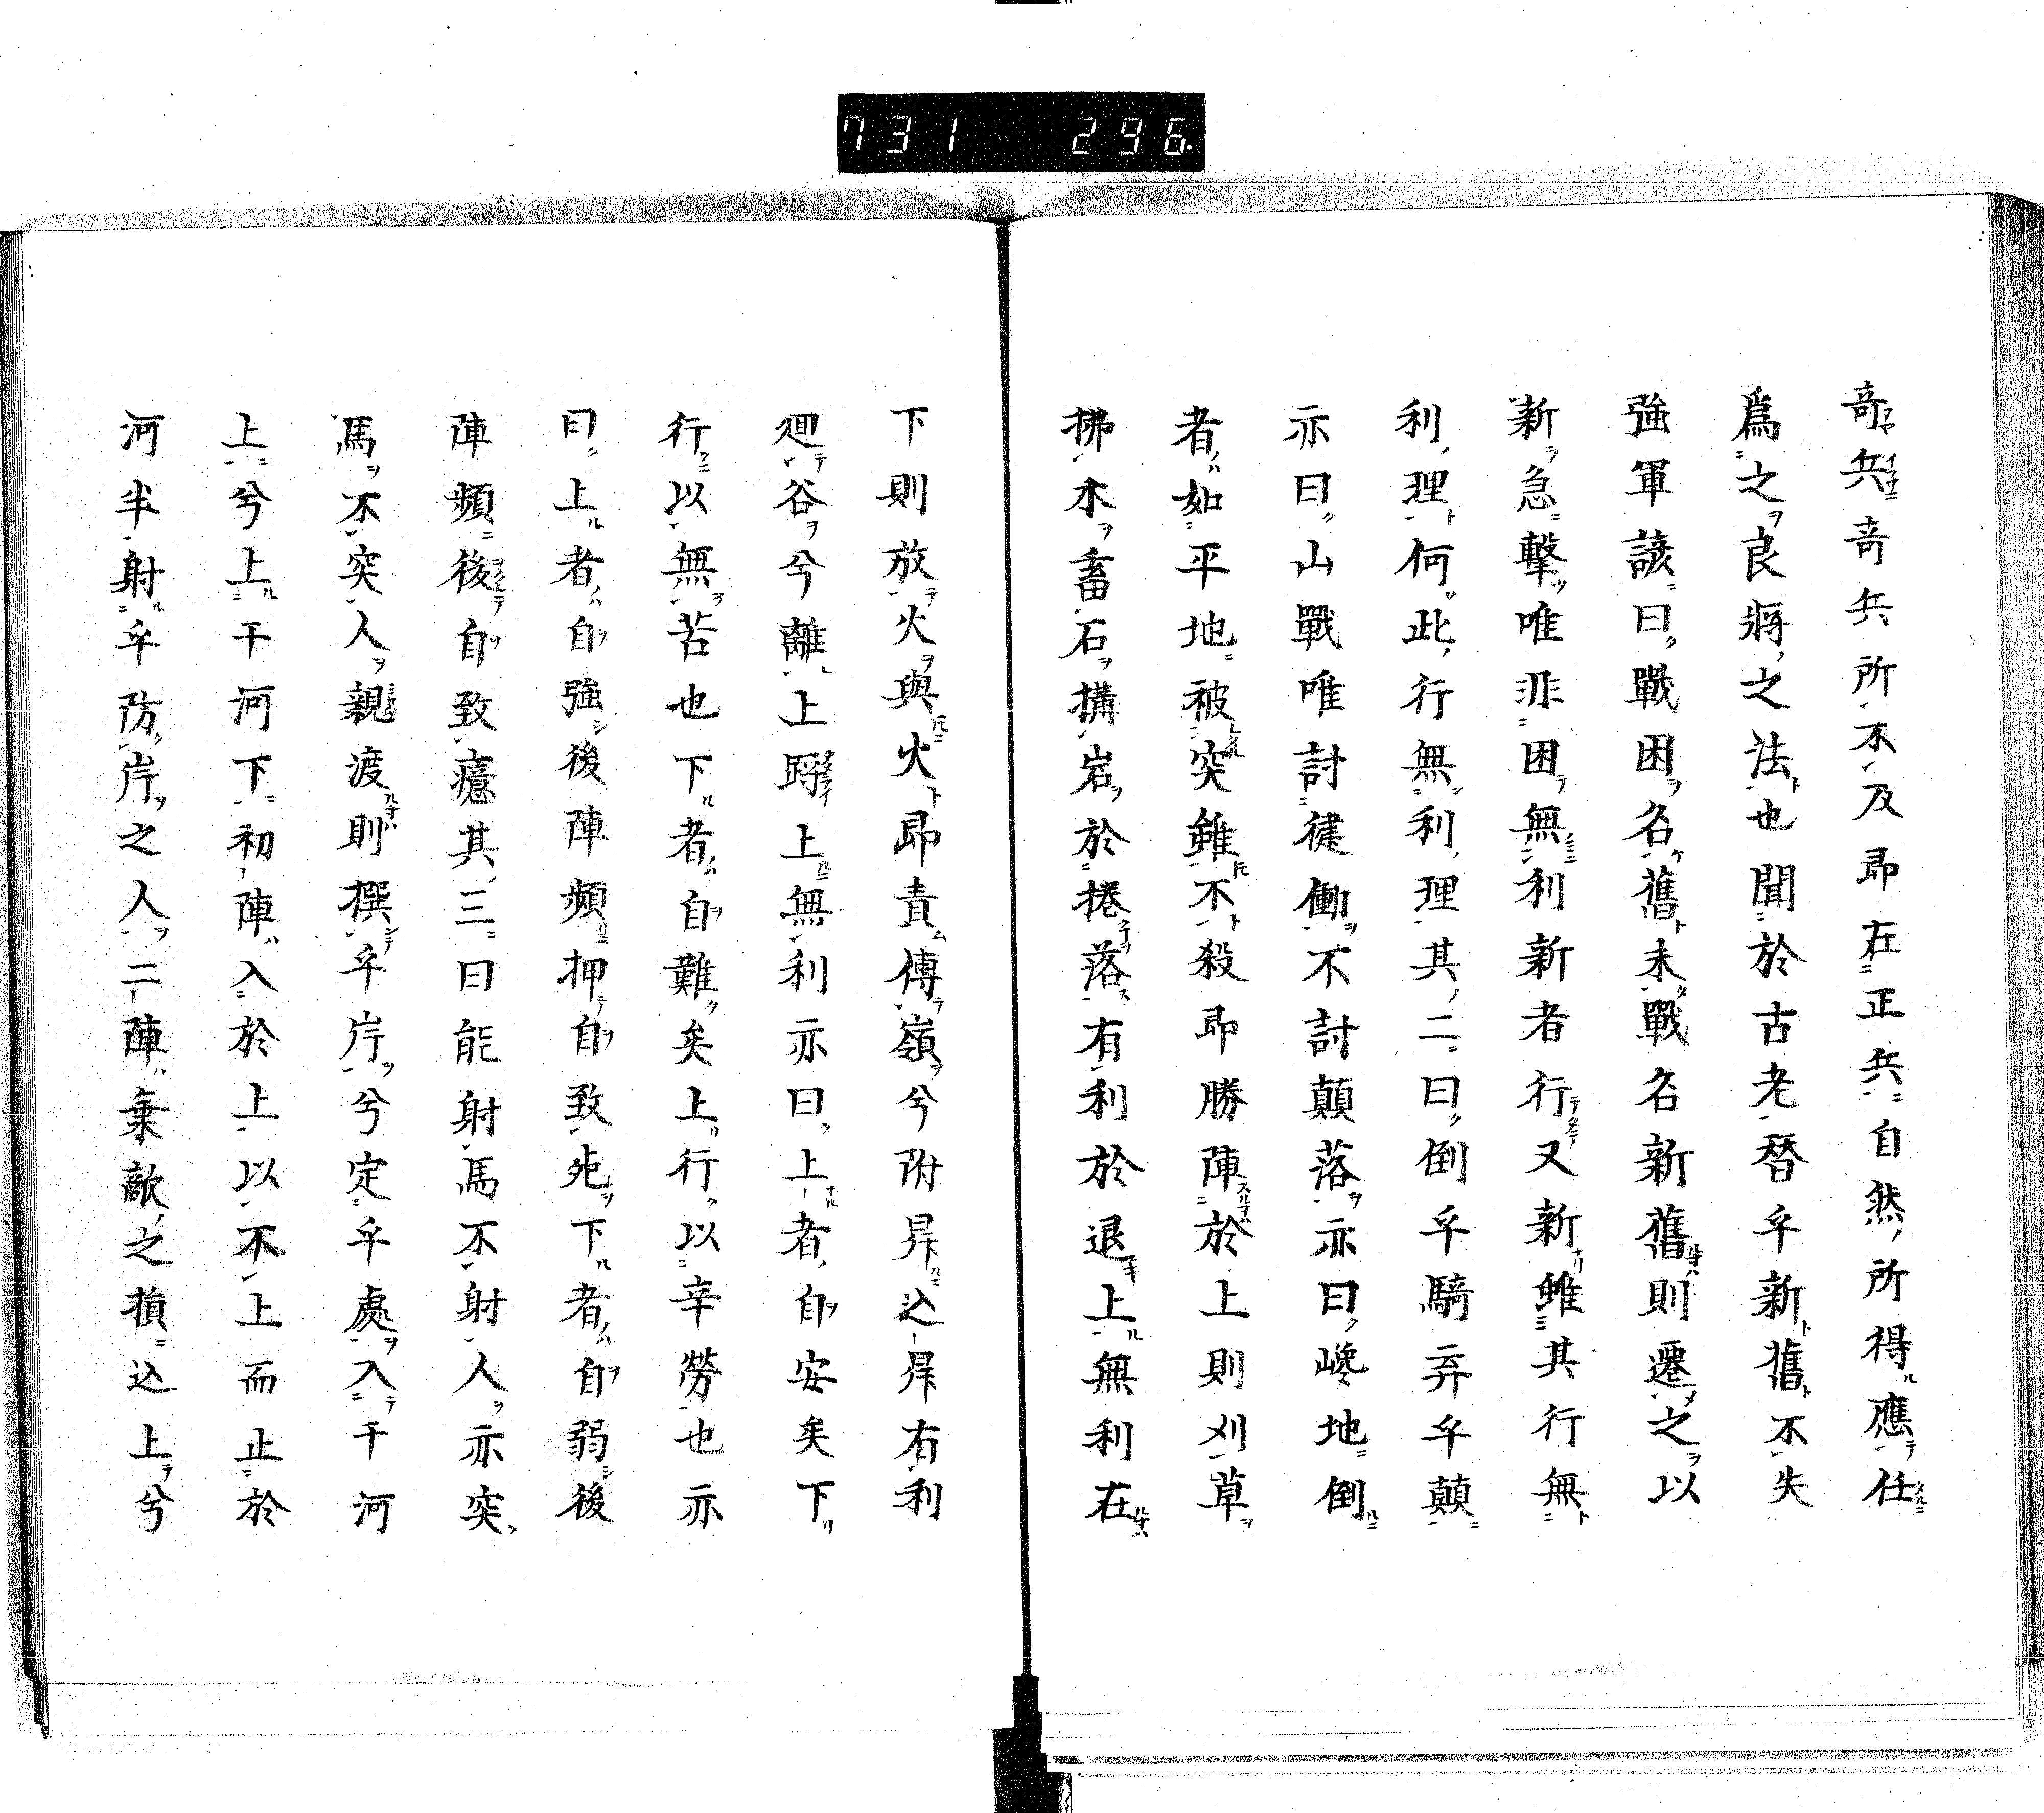 731 296
奇兵奇兵所不及即在正兵自然所得應任
爲之良將之法也聞於古老昏乎新舊不失
強軍諺曰戰困名舊未戰名新舊則遷之以
新急擊唯非困無利新者行又新雖其行無
利理何此行無利理其二曰倒乎騎弃乎顛
亦曰山戰唯討健働不討顛落亦曰巉地倒
者如平地被突雖不殺即勝陣於上則刈草
拂木畜石搆岩於捲落有利於退上無利在
下則放火與火即責傳嶺兮附昇込昇有利
廻谷兮離上蹘上無利亦曰上者自安矣下
行以無苦也下者自難矣上行以辛勞也亦
曰上者自強後陣頻押自致死下者自弱後
陣頻後自致癔其三曰能射馬不射人亦突
馬不突人親渡則撰乎岸兮定乎處入干河
上兮上干河下初陣入於上以不上而止於
河半射乎防岸之人二陣棄敵之損込上兮